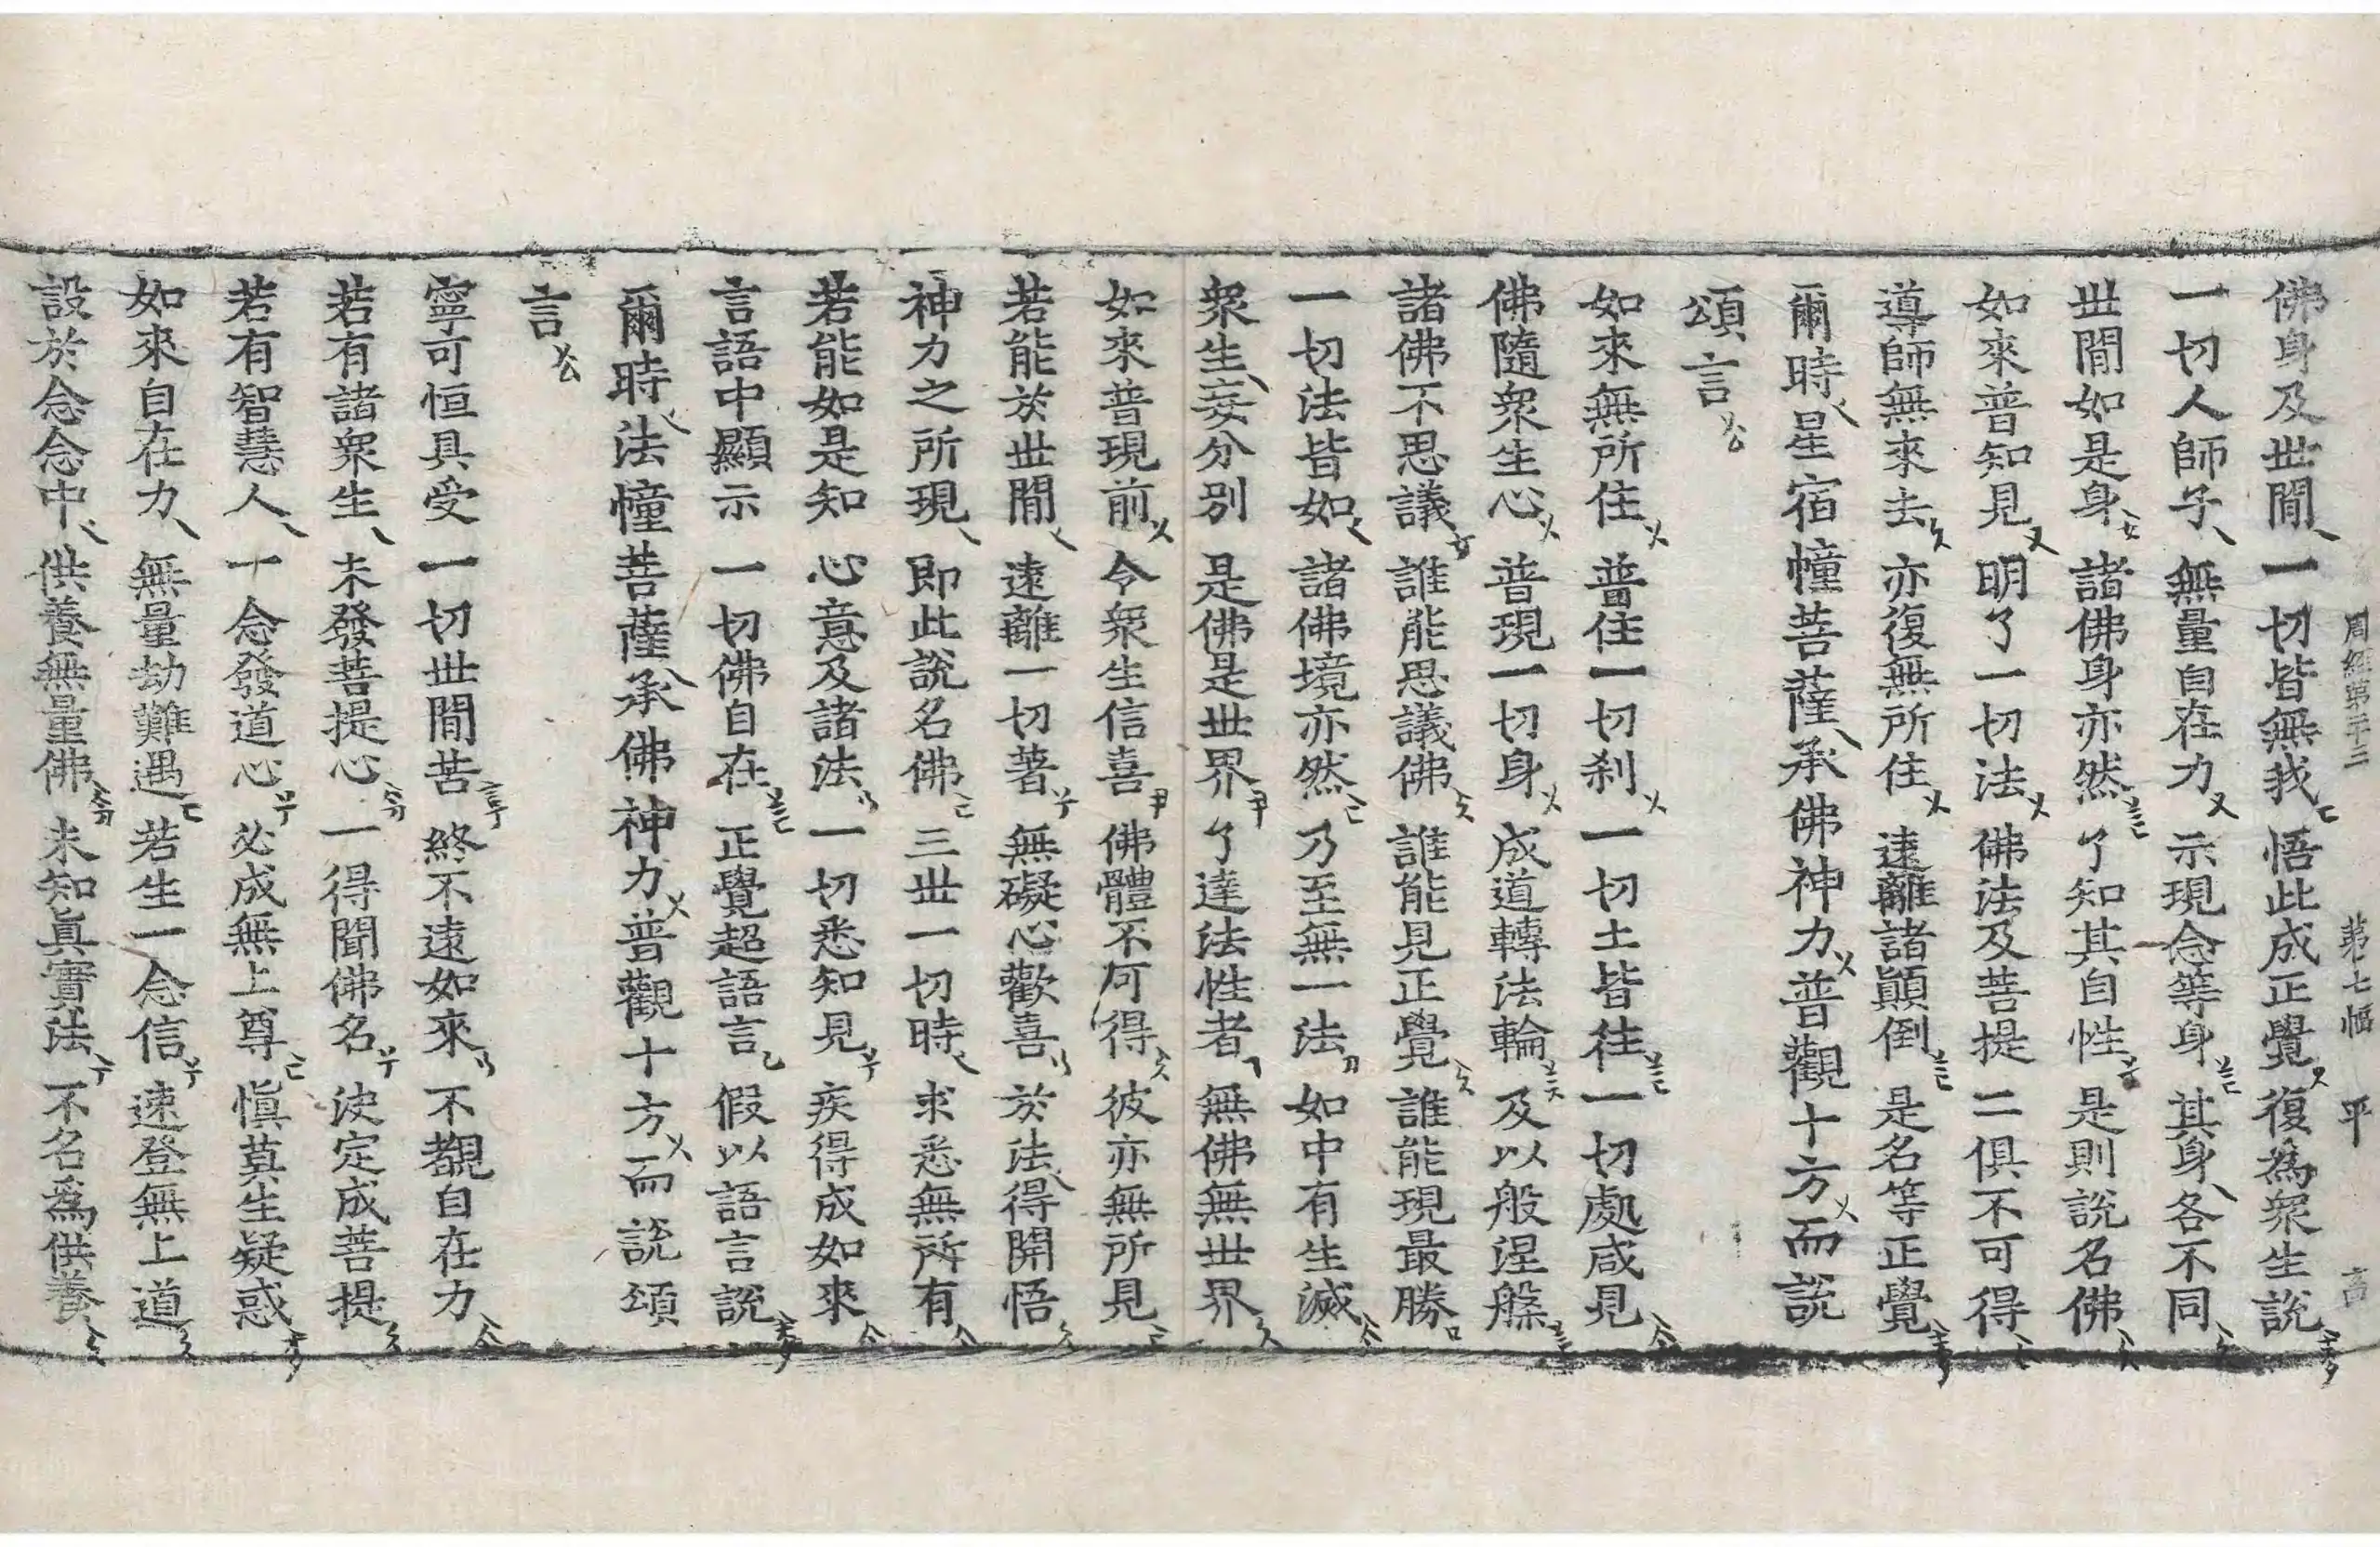 周經第二十三　第七幅　平　言
佛身及世間　一切皆無我　悟此成正覺　復為衆生說
一切人師子　無量自在力　示現念等身　其身各不同
世間如是身　諸佛身亦然　了知其自性　是則說名佛
如來普知見　明了一切法　佛法及菩提　二俱不可得
導師無來去　亦復無所住　遠離諸顚倒　是名等正覺
爾時星宿幢菩薩承佛神力普觀十方而說
頌言
如來無所住　普住一切刹　一切土皆往　一切處咸見
佛隨衆生心　普現一切身　成道轉法輪　及以般涅槃
諸佛不思議　誰能思議佛　誰能見正覺　誰能現最勝
一切法皆如　諸佛境亦然　乃至無一法　如中有生滅
衆生妄分別　是佛是世界　了達法性者　無佛無世界
如來普現前　令衆生信喜　佛體不可得　彼亦無所見
若能於世間　遠離一切著　無礙心歡喜　於法得開悟
神力之所現　即此說名佛　三世一切時　求悉無所有
若能如是知　心意及諸法　一切悉知見　疾得成如來
言語中顯示　一切佛自在　正覺超語言　假以語言說
爾時法幢菩薩承佛神力普觀十方而說頌
言
寧可恒具受　一切世間苦　終不遠如來　不覩自在力
若有諸衆生　未發菩提心　一得聞佛名　決定成菩提
若有智慧人　一念發道心　必成無上尊　愼莫生疑惑
如來自在力　無量劫難遇　若生一念信　速登無上道
設於念念中　供養無量佛　未知眞實法　不名爲供養